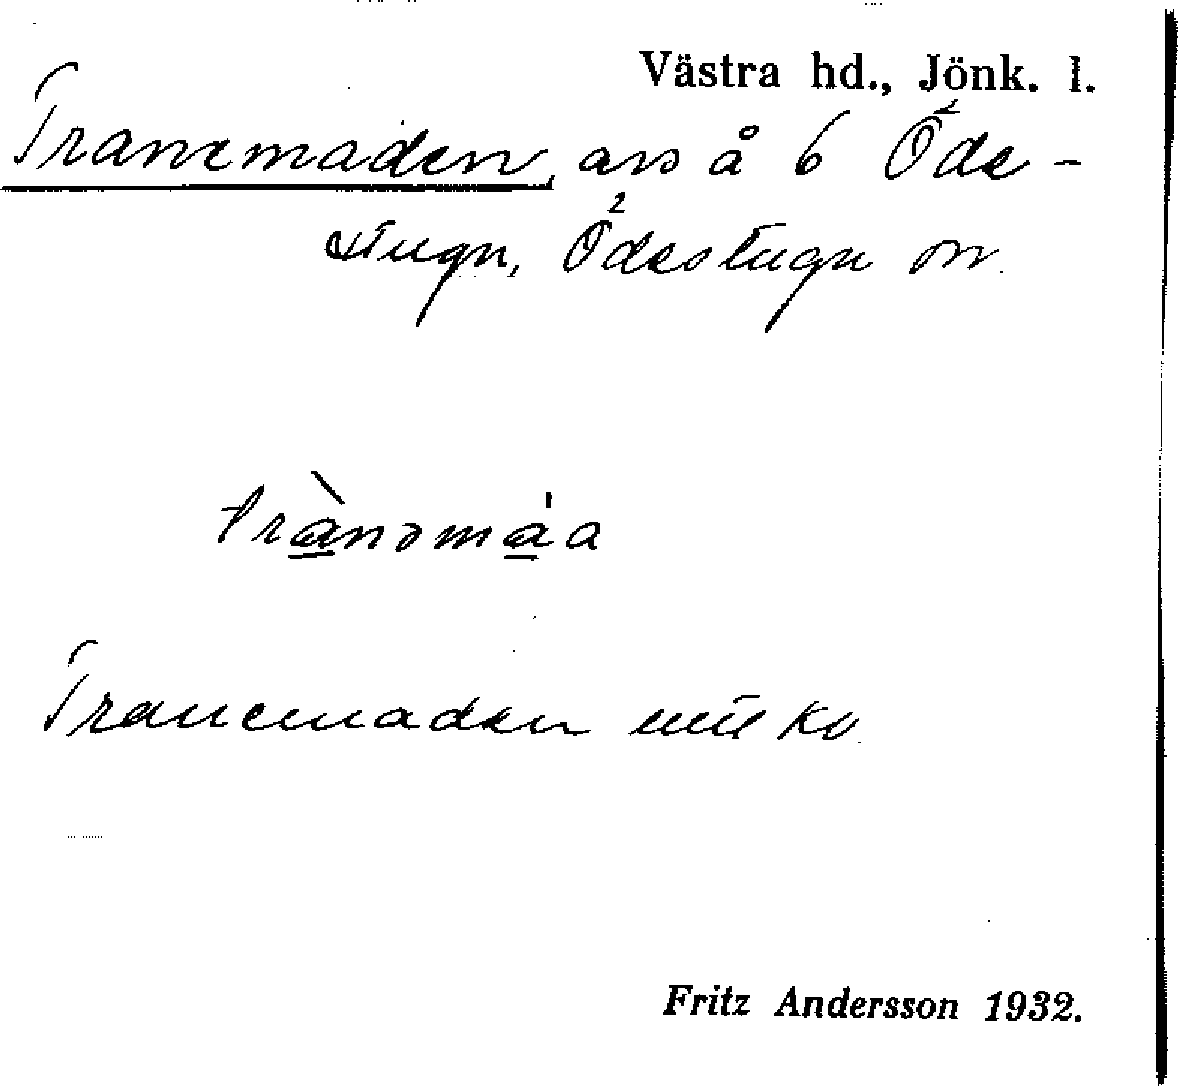 Västra hd., Jönk. l.
Tranemaden, avs å 6 Öde-
stugu, Ödestugu sn.
trànəmáa
Tranemaden
Fritz Andersson 1932.